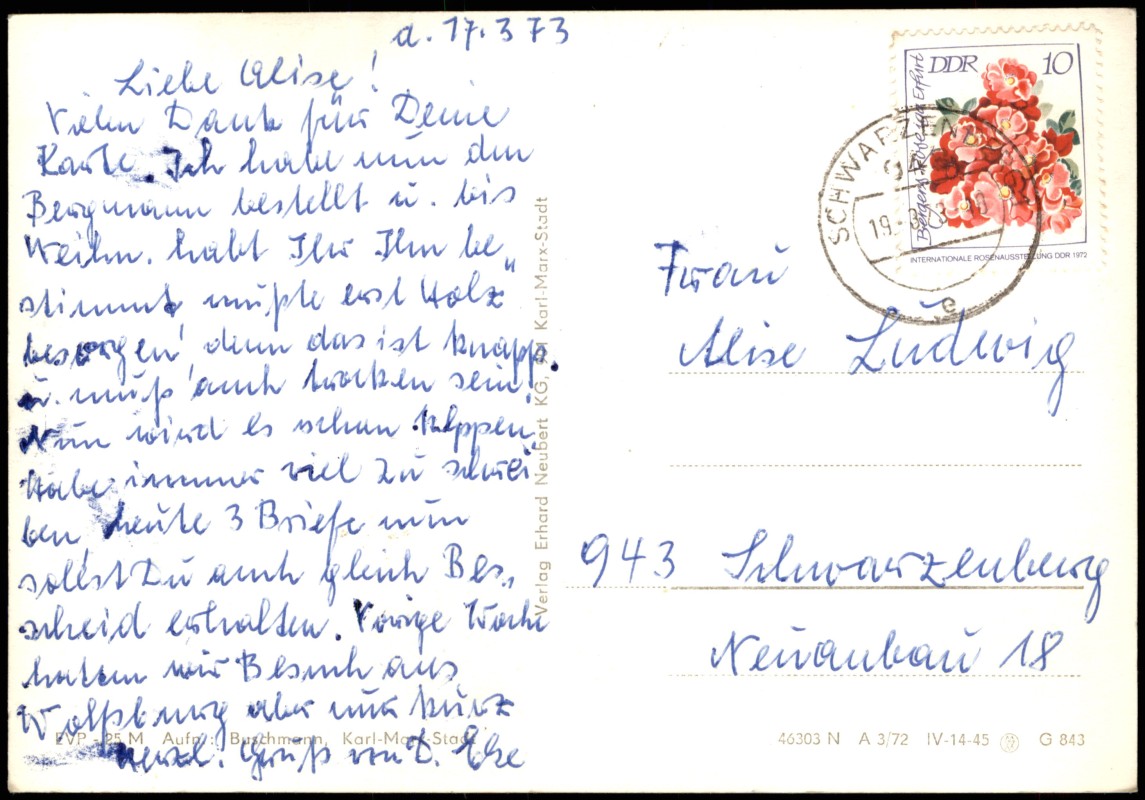 d. 17.3 73
Liebe Alise!
Vielen Dank für Deine
Karte. Ich habe nun den
Bergmann bestellt u. bis
Weihn. habt Ihr Ihn be„
stimmt mußte erst Holz
besorgen denn das ist knapp.
u. muß auch trocken sein.
Nun wird es schon kleppen.
Habe immer viel zu schrei
ben, heute 3 Briefe nun
sollst Du auch gleich Bes„
scheid erhalten. Vorige Woche
hatten wir Besuch aus
Wolfsburg aber nur kurz
Herzl. Gruß von D. Else
EVP -,25 M Aufn.: Buschmann, Karl-Marx-Stadt
Verlag Erhard Neubert KG, Karl-Marx-Stadt
DDR 10
Bergers Rose Erfurt
INTERNATIONALE ROSENAUSSTELLUNG DDR 1972
SCHWARZEN
e
Frau
Alise Ludwig
943 Schwarzenberg
Neuanbau 18
46303 N A 3/72 IV-14-45 G 843